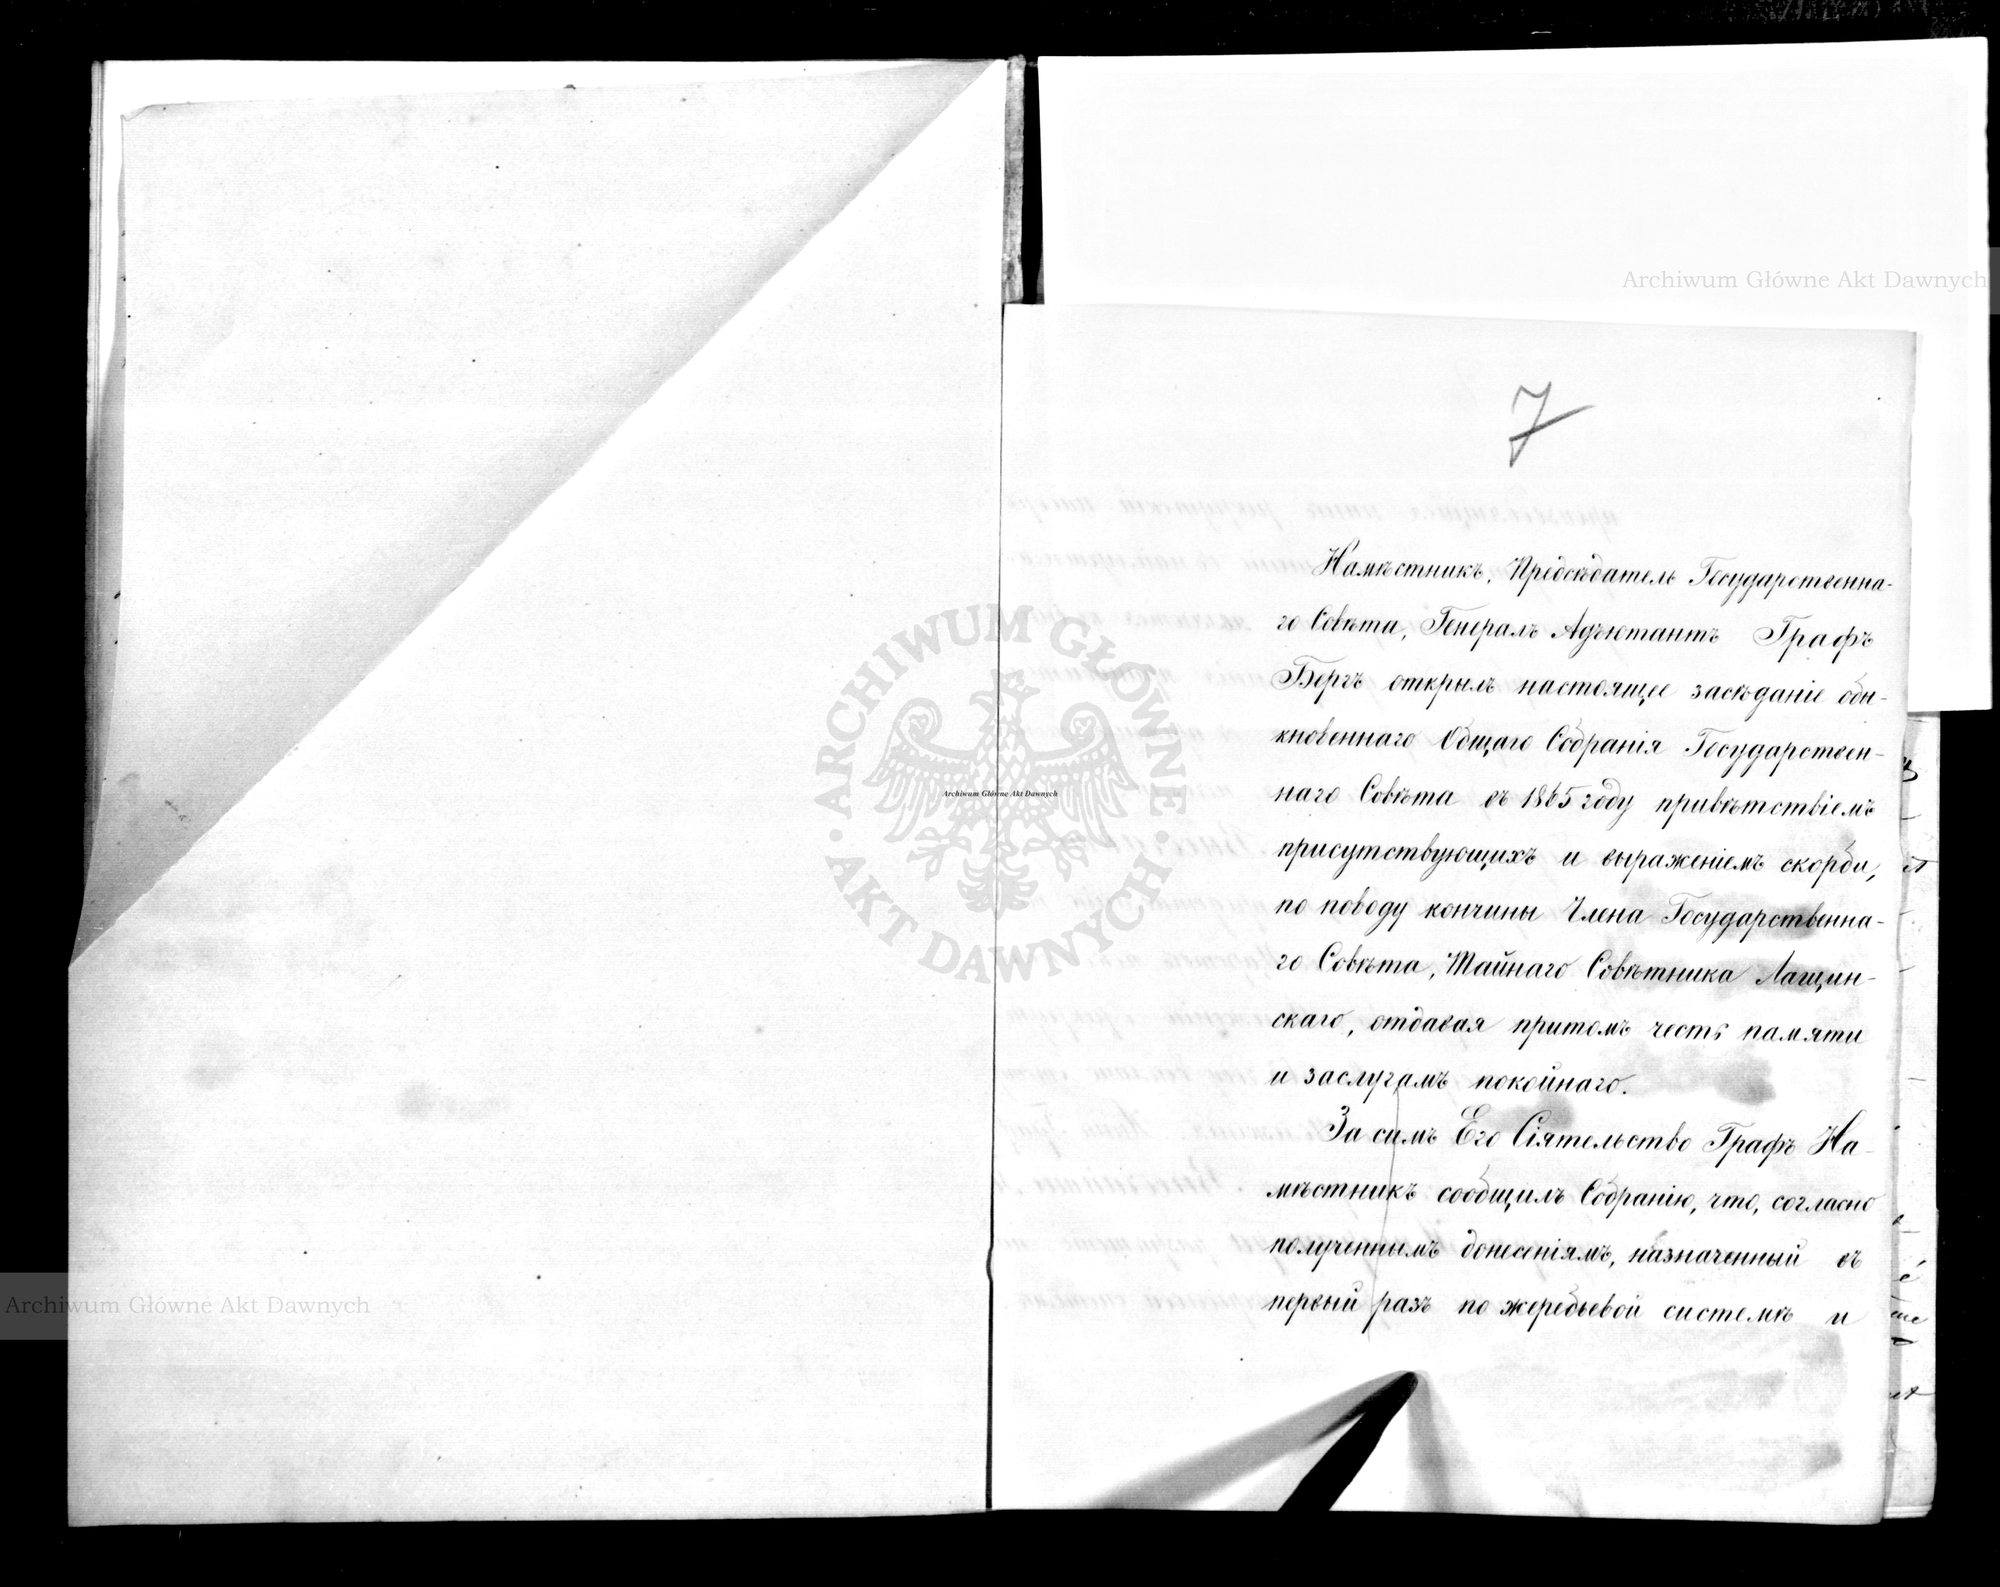 Archiwum Główne Akt Dawnych
7
Намѣстникъ, Предсѣдатель Государственна-
го Совѣта, Генералъ Адъютантъ Графъ
Бергъ открылъ настоящее засѣданіе обы-
кновеннаго Общаго Собранія Государствен-
наго Совѣта въ 1865 году привѣтствіемъ
присутствующихъ и выраженіемъ скорби,
по поводу кончины Члена Государственна-
го Совѣта, Тайнаго Совѣтника Лащин-
скаго, отдавая притомъ честь памяти
и заслугамъ покойнаго.
За симъ Его Сіятельство Графъ На-
мѣстникъ сообщилъ Собранію, что, согласно
полученнымъ донесеніямъ, назначенный въ
первый разъ по жеребьевой системѣ и
ARCHIWUM GŁÓWNE
AKT DAWNYCH
Archiwum Główne Akt Dawnych
Archiwum Główne Akt Dawnych